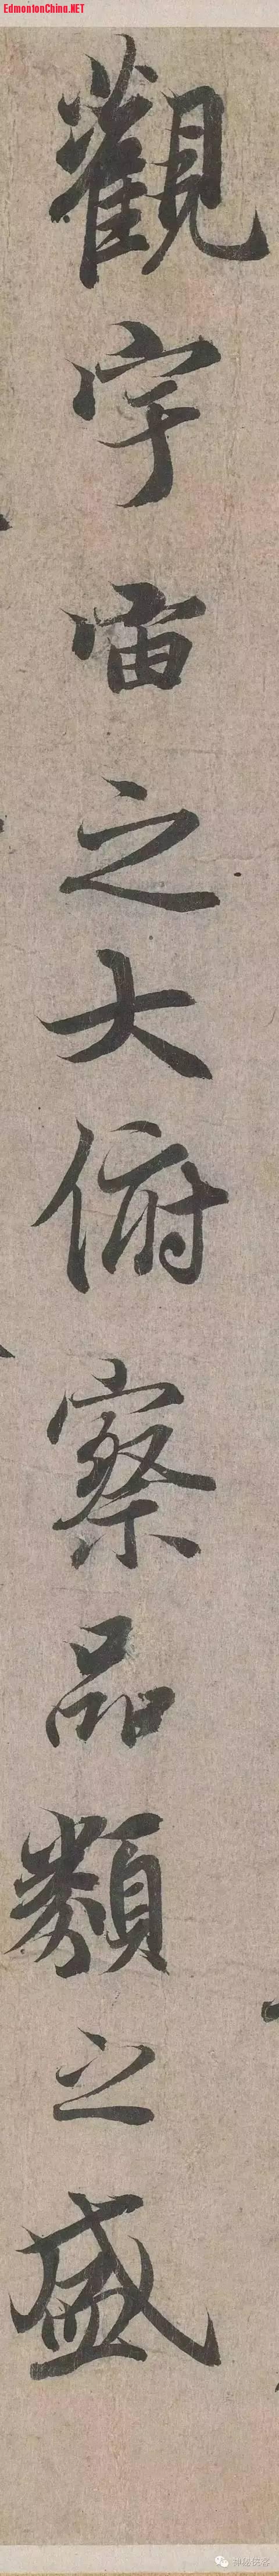 EdmontonChina.NET
觀宇宙之大俯察品類之盛
神秘侠客